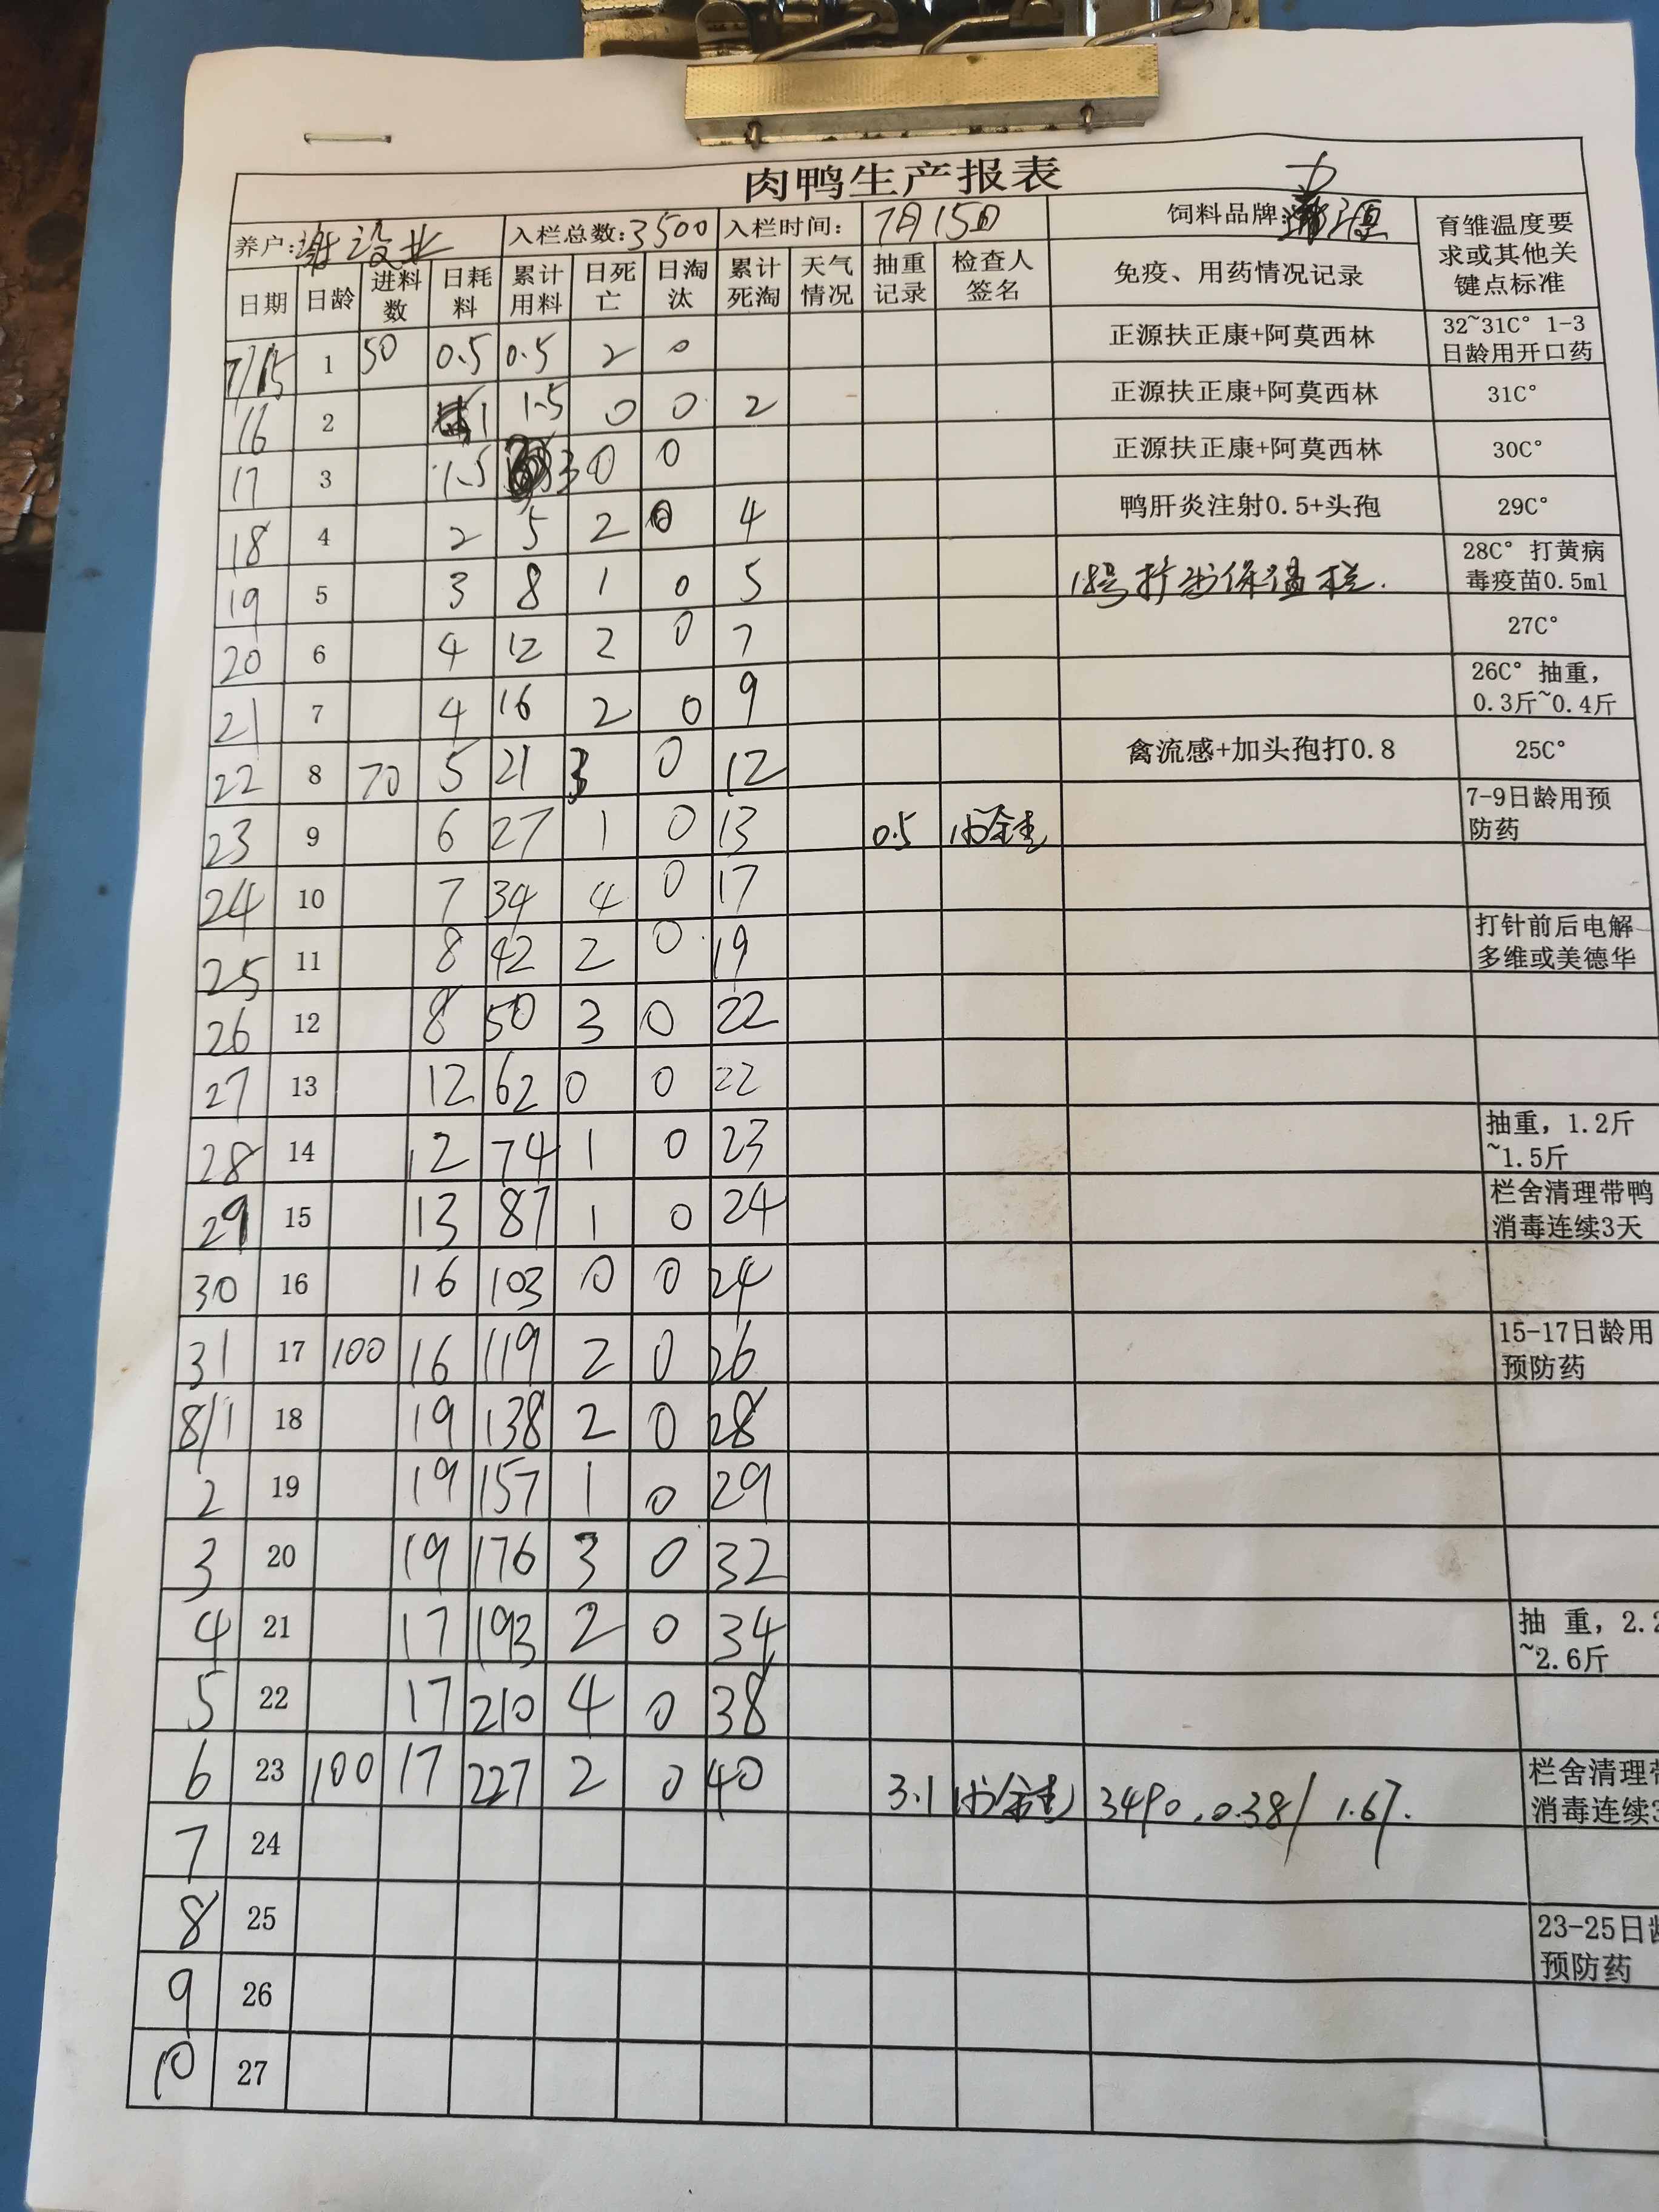 肉鸭生产报表
养户:谢设业 入栏总数:3500 入栏时间: 7月15日 饲料品牌: 育雏温度要求或其他关键点标准
日期 日龄 进料数 日耗料 累计用料 日死亡 日淘汰 累计死淘 天气情况 抽重记录 检查人签名 免疫、用药情况记录
7/15 1 50 0.5 0.5 2 0 正源扶正康+阿莫西林 32~31C° 1-3日龄用开口药
16 2 1 1.5 0 0 2 正源扶正康+阿莫西林 31C°
17 3 1.5 3 0 0 正源扶正康+阿莫西林 30C°
18 4 2 5 2 0 4 鸭肝炎注射0.5+头孢 29C°
19 5 3 8 1 0 5 18号 保温栏. 28C° 打黄病毒疫苗0.5ml
20 6 4 12 2 0 7 27C°
21 7 4 16 2 0 9 26C° 抽重，0.3斤~0.4斤
22 8 70 5 21 3 0 12 禽流感+加头孢打0.8 25C°
23 9 6 27 1 0 13 0.5 7-9日龄用预防药
24 10 7 34 4 0 17
25 11 8 42 2 0 19 打针前后电解多维或美德华
26 12 8 50 3 0 22
27 13 12 62 0 0 22
28 14 12 74 1 0 23 抽重，1.2斤~1.5斤
29 15 13 87 1 0 24 栏舍清理带鸭消毒连续3天
30 16 16 103 0 0 24
31 17 100 16 119 2 0 26 15-17日龄用预防药
8/1 18 19 138 2 0 28
2 19 19 157 1 0 29
3 20 19 176 3 0 32
4 21 17 193 2 0 34 抽 重，2.2~2.6斤
5 22 17 210 4 0 38
6 23 100 17 227 2 0 40 3.1 3490.0.38/ 1.67. 栏舍清理带 消毒连续3
7 24
8 25 23-25日龄 预防药
9 26
10 27